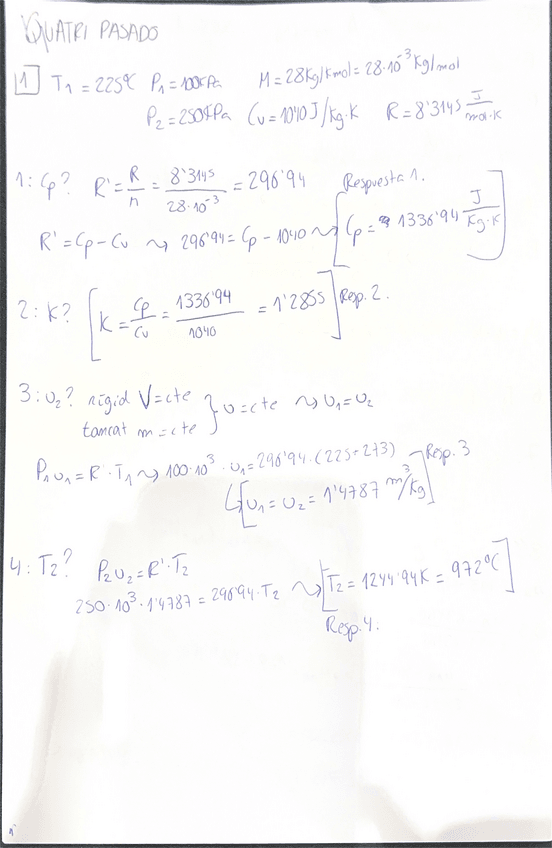 QUATRI PASADO
1 T1 = 225ºC P1 = 100KPa M = 28Kg/Kmol = 28·10^-3 Kg/mol
P2 = 250KPa Cv = 1040 J/Kg·K R = 8'3145 J/mol·K
1: Cp? R' = R/n = 8'3145/28·10^-3 = 296'94 Respuesta 1.
R' = Cp - Cv ⤳ 296'94 = Cp - 1040 ⤳ [Cp = 1336'94 J/Kg·K]
2: K? [K = Cp/Cv = 1336'94/1040 = 1'2855] Resp. 2.
3: υ2? rígid V = cte } υ = cte ⤳ υ1 = υ2
tancat m = cte
P1υ1 = R'·T1 ⤳ 100·10^3·υ1 = 296'94·(225+273) Resp. 3
↳ [υ1 = υ2 = 1'4787 m^3/Kg]
4: T2? P2υ2 = R'·T2
250·10^3·1'4787 = 296'94·T2 ⤳ [T2 = 1244'94K = 972ºC]
Resp. 4.